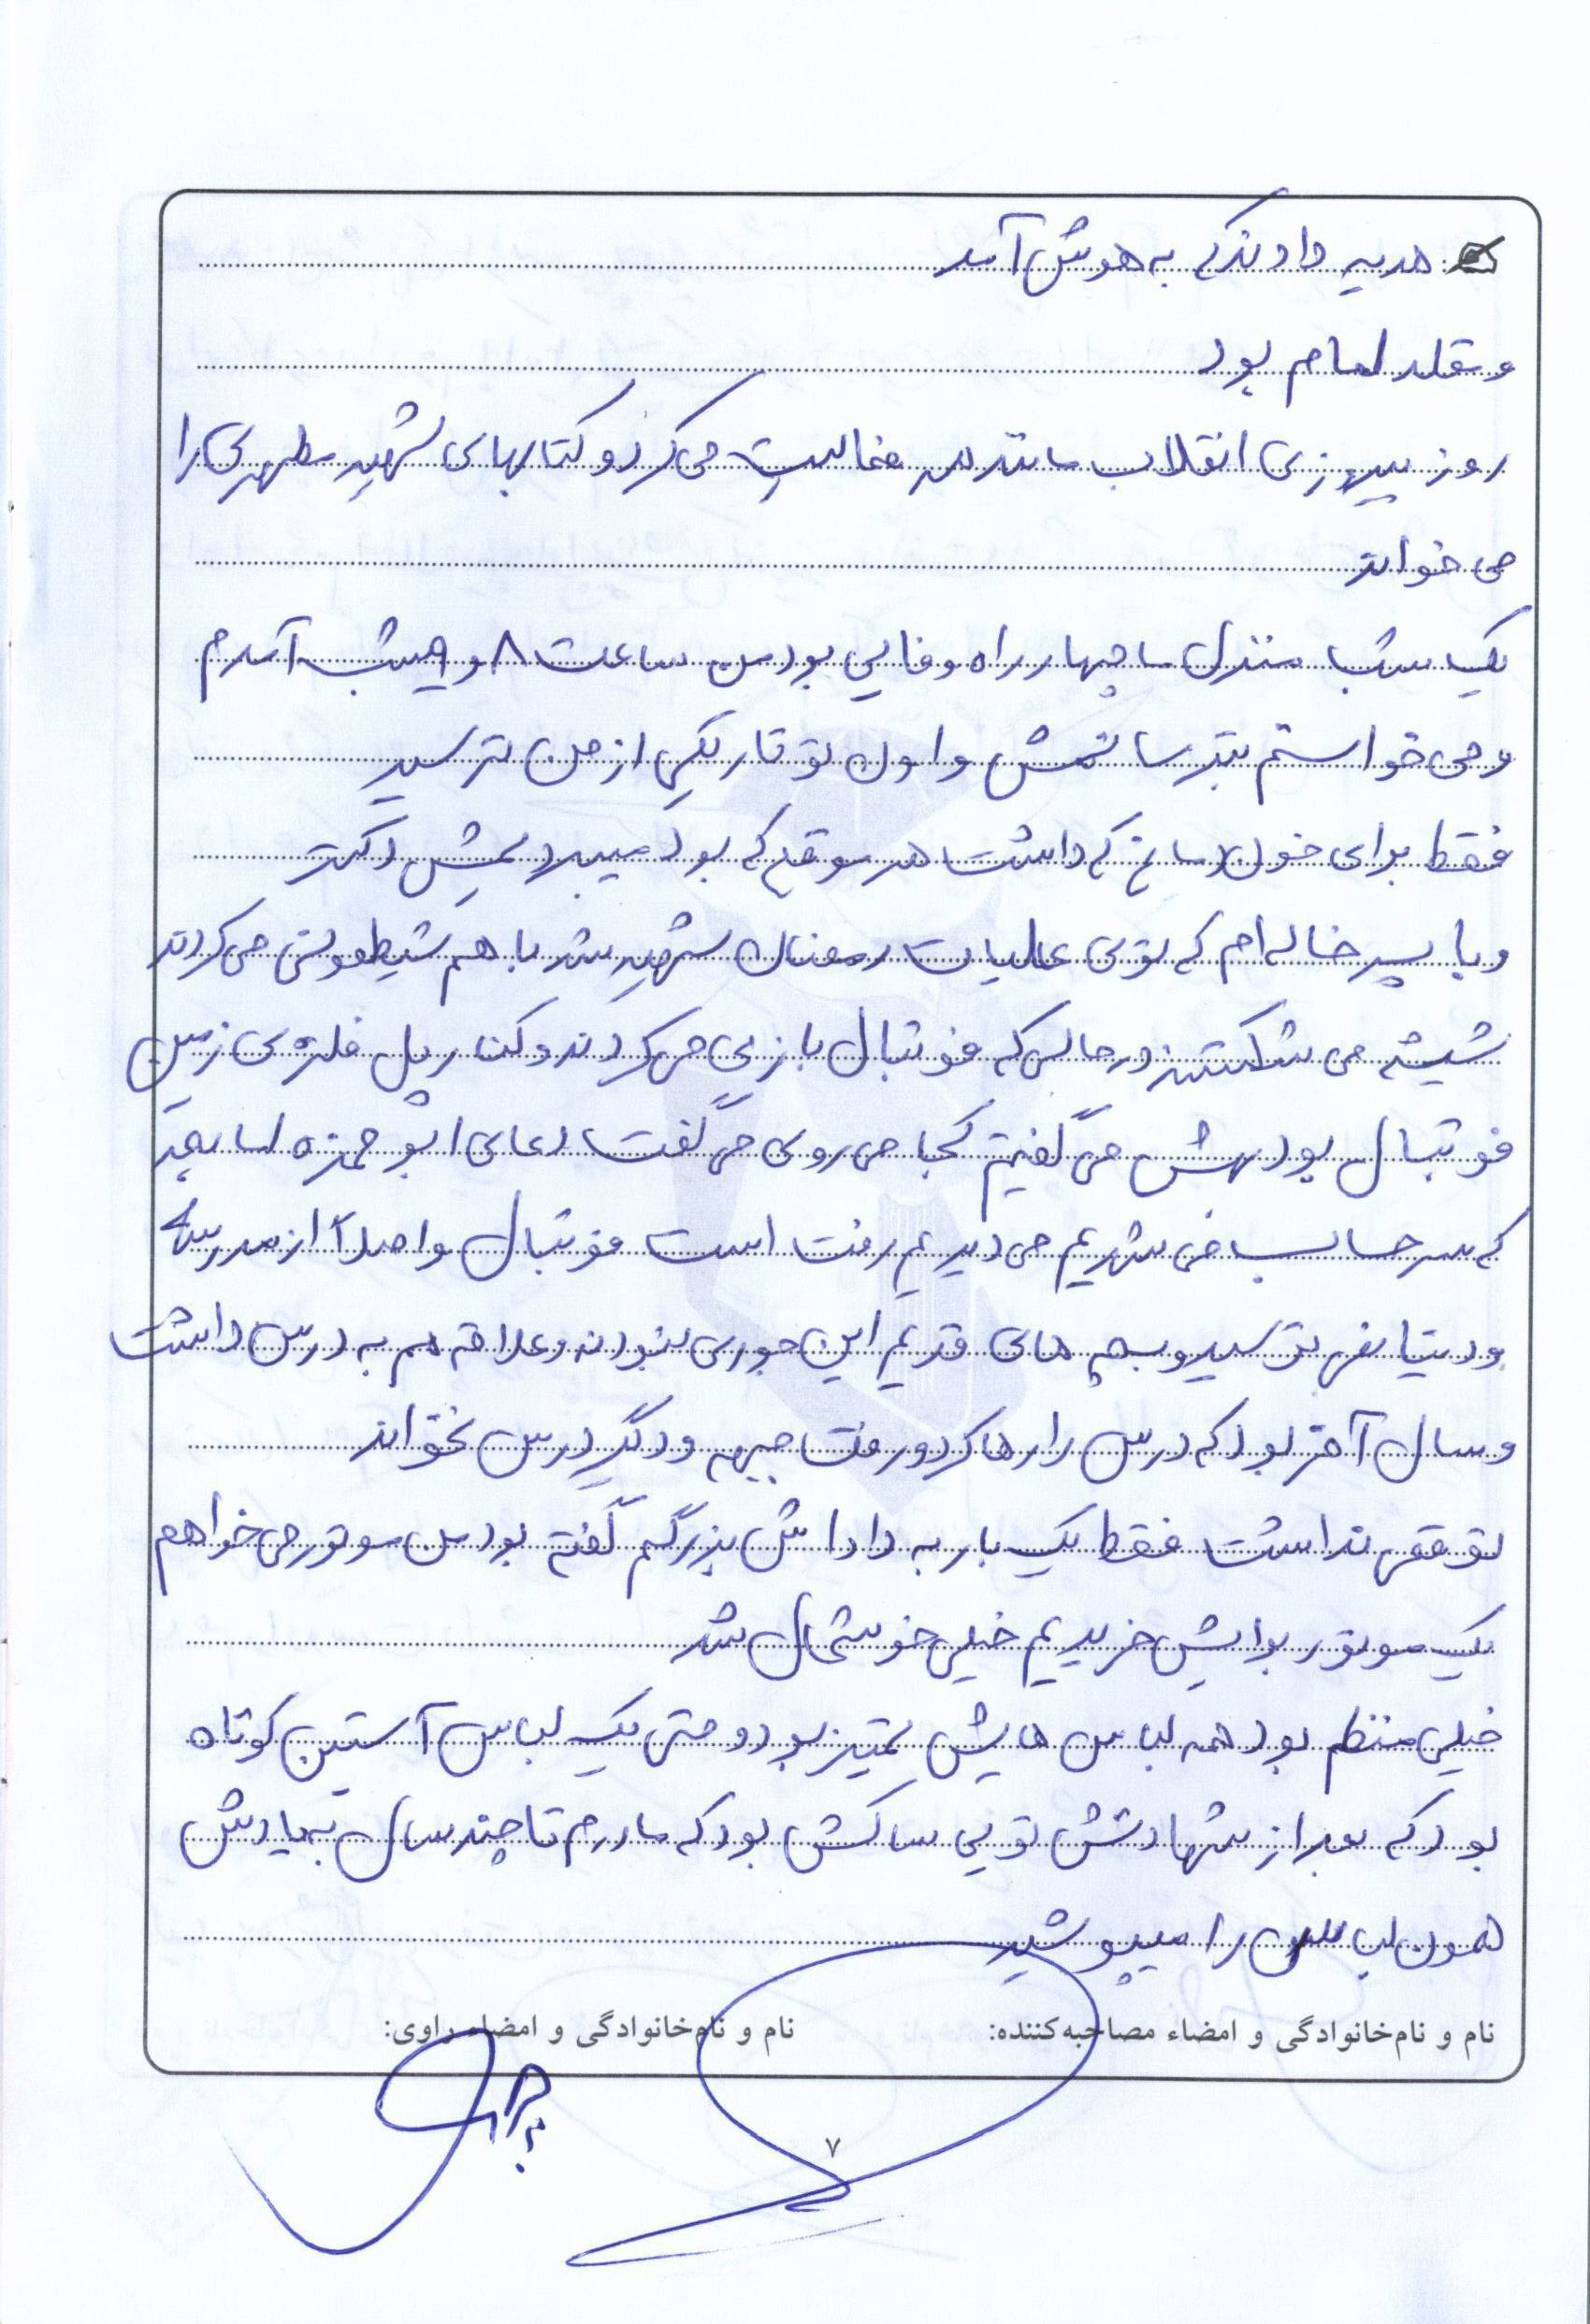 هدیه دادند که به هوش آمد
و مقلد امام بود
روز پیروزی انقلاب مانند من فعالیت می کرد و کتابهای شهید مطهری را
می خواند
یک شب منزل ما چهار راه وفایی بود من ساعت ۸ و ۹ شب آمدم
و می خواستم بترسانمش و اون تو تاریکی از من نترسید
فقط برای خون دماغ که داشت هر موقع که بود میبردیمش دکتر
و با پسر خاله ام که توی عملیات رمضان شهید شد با هم شیطونی می کردند
شیشه می شکستند در حالی که فوتبال بازی می کردند و کنار پل فلزی زمین
فوتبال بود بهش می گفتیم کجا می روی می گفت دعای ابو حمزه اما بعد
که سر حساب می شدیم می دیدیم رفته است فوتبال و اصلاً از مدرسه
و دبیرستان نمی ترسید و بچه های قدیم این جوری نبودند و علاقه هم به درس داشت
و سال آخر بود که درس را رها کرد و رفت جبهه و دیگر درس نخواند
توقعی نداشت فقط یک بار به داداش بزرگم گفته بود من موتور می خواهم
یک موتور برایش خریدیم خیلی خوشحال شد
خیلی منظم بود همه لباس هایش تمیز بود و حتی یک لباس آستین کوتاه
بود که بعد از شهادتش توی ساکش بود که مادرم تا چند سال به یادش
همون لباس را میپوشید
نام و نام‌خانوادگی و امضاء مصاحبه‌کننده: نام و نام‌خانوادگی و امضاء راوی:
۷